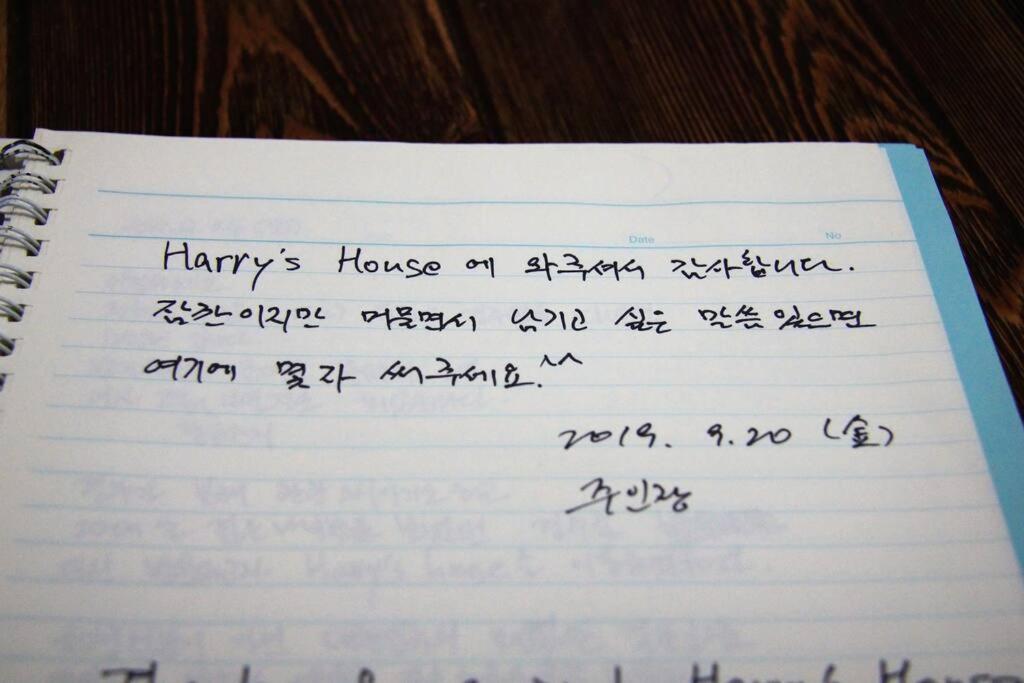 Date No
Harry's House 에 와주셔서 감사합니다.
잠깐이지만 머물면서 남기고 싶은 말씀 있으면
여기에 몇 자 써주세요.^^
2019. 9.20 (金)
주인장
Harry's House